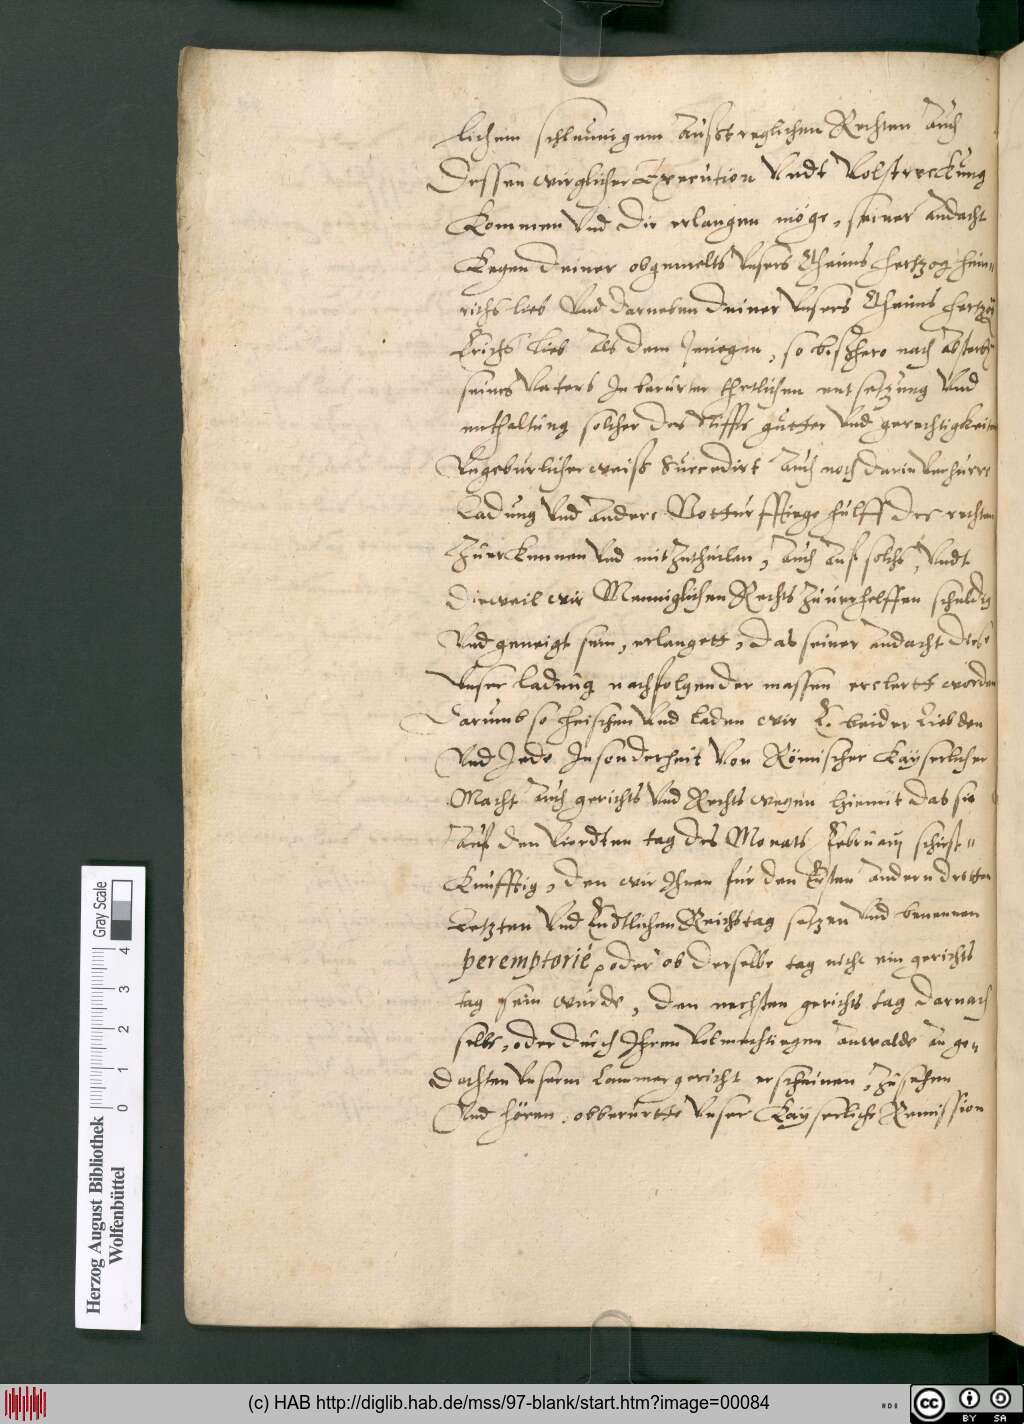 lichem schleunigem Außtreglichen Rechten Auch
Dessen wirglicher Execution Undt Volstreckung
Kommen Und die erlangen möge, seiner andacht
Kegen deiner obgemelts Unsers Oheims Hertzog Hein=
richs lieb Und darneben deiner Unsers Oheims Hertzog
Erichs Lieb Als dem Jenigen, so bißhero nach absterben
seines Vaters In berurter thetlichen entsetzung Und
enthaltung solcher des Stiffts gutter Und gerechtigkeiten
Ungeburlicher weiß Succedirt Auch noch darin Verharre
Ladung Und Andere Notturfftige hulff des rechten
Zuerkennen Und mitZutheilen, Auch Auf solchs, Undt
Dieweil wir Menniglichen Rechts Zuuerhelffen schuldig
Und geneigt sein, erlangett, das seiner andacht diese
Unser ladung nachfolgender massen erclertt worden
Darumb so heischen Und laden wir E. beider Liebden
Und Jede Insonderheit Von Römischer Kayserlicher
Macht Auch gerichts Und Rechts wegen hiemit das sie
Auf den Vierdten tag des Monats February schirst=
Kunfftig, den wir Ihnen für den Ersten andern dritten
Letzten Und Endtlichen Reichstag setzen Und benennen
peremptorie, oder ob derselbe tag nicht ein gerichts
tag sein würde, den nechsten gerichts tag darnach
selbs, oder durch Ihren Volmechtiegen anwalde an ge=
dachten Unserm Cammergericht erscheinen, Zusehen
Und hören, obberurtte Unser Kayserliche Remission
Gray Scale
0 1 2 3 4
Herzog August Bibliothek
Wolfenbüttel
(c) HAB http://diglib.hab.de/mss/97-blank/start.htm?image=00084
cc BY SA